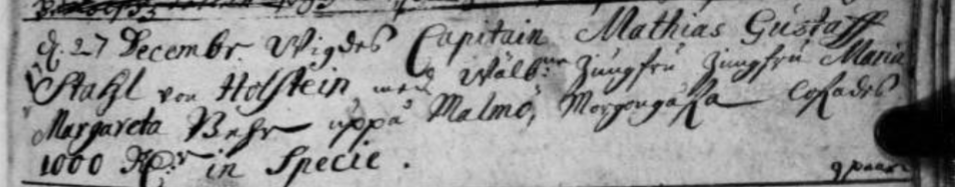 d. 27 Decembr. Wigdes Capitain Mathias Gustaff
Stahl von Holstein med Wälb:ne Jungfru Jungfru Maria
Margareta Behr uppå Malmö, Morgongåfva lofvades
1000 Rd:r in Specie.
9 paar